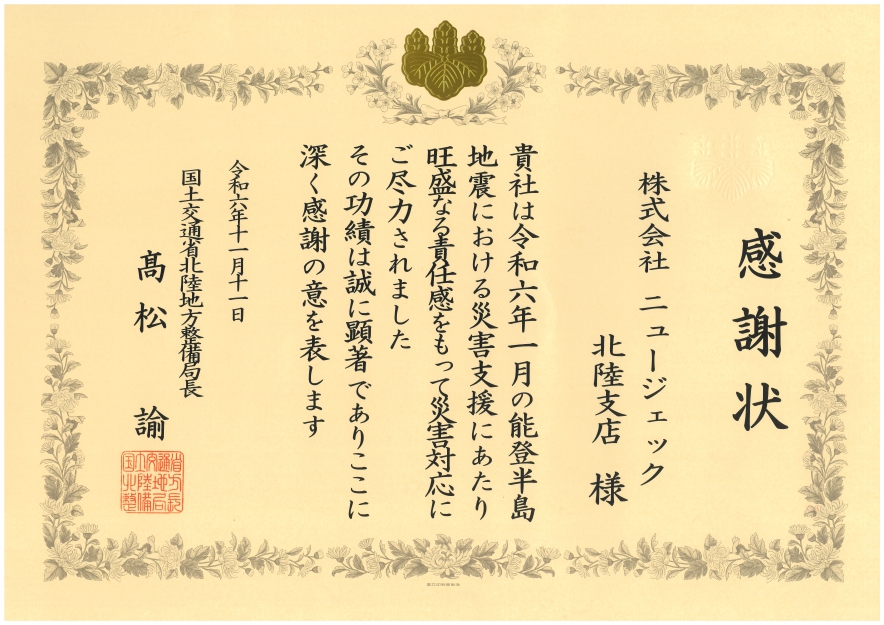 感謝状
株式会社 ニュージェック
北陸支店 様
貴社は令和六年一月の能登半島
地震における災害支援にあたり
旺盛なる責任感をもって災害対応に
ご尽力されました
その功績は誠に顕著でありここに
深く感謝の意を表します
令和六年十一月十一日
国土交通省北陸地方整備局長
髙松 諭